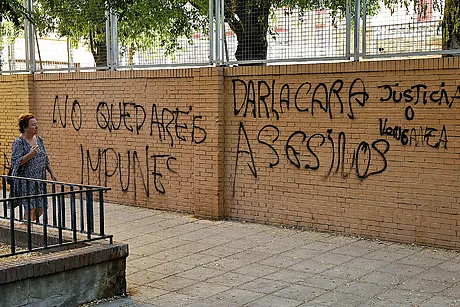 NO QUEDARÉIS
IMPUNES
DAR LA CARA
ASESINOS
JUSTICIA
O
VENGANZA